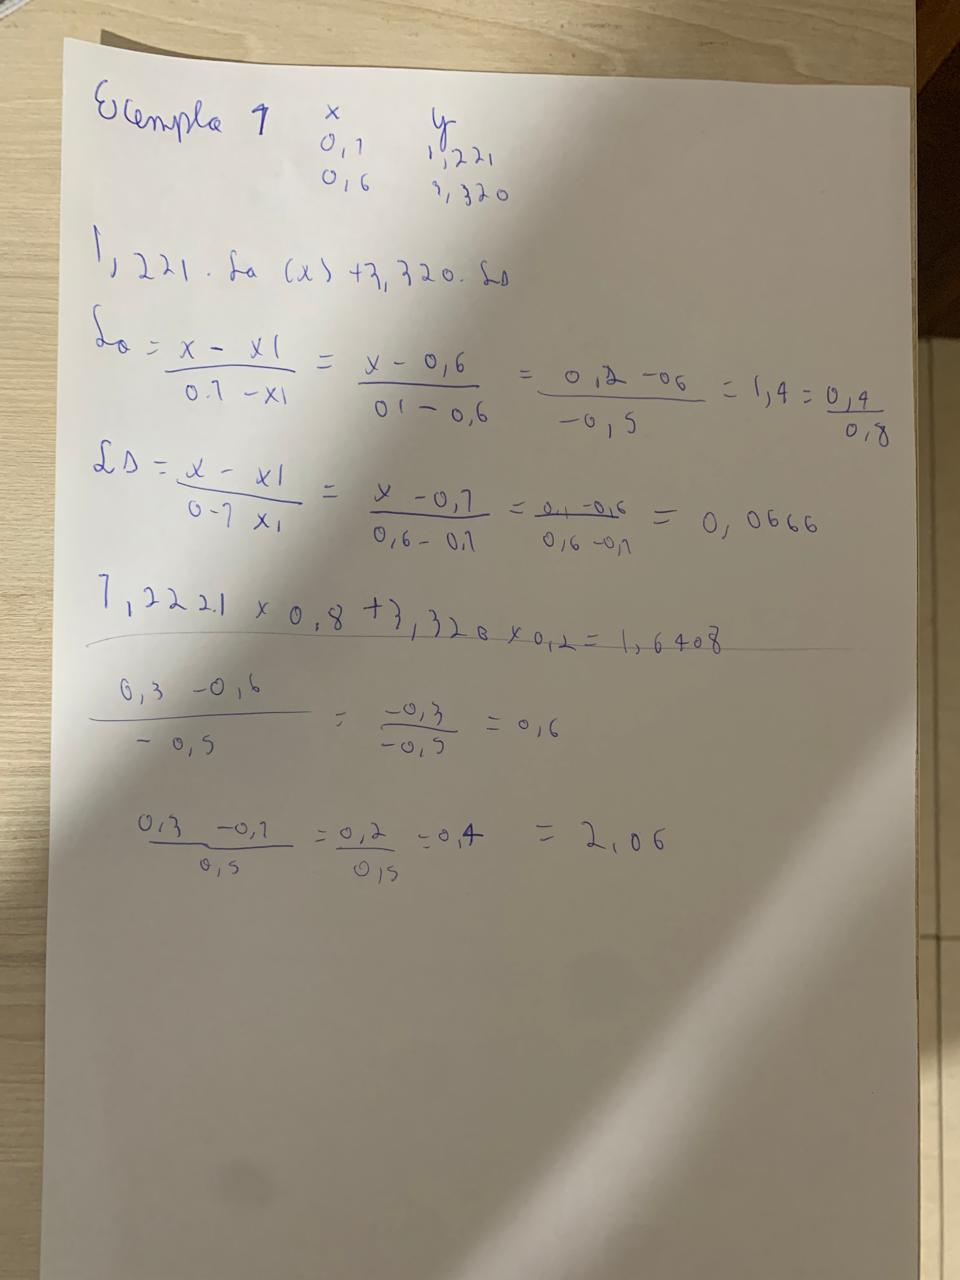 Exemplo 1 x y
0,1 1,221
0,6 3,320
1,221 . L0 (x) + 3,320 . L1
L0 = x - x1 / 0.1 - x1 = x - 0,6 / 01 - 0,6 = 0,2 - 06 / -0,5 = 1,4 = 0,4 / 0,8
L1 = x - x1 / 0-1 x1 = x - 0,1 / 0,6 - 0,1 = 0,1 - 0,6 / 0,6 - 0,1 = 0,0666
1,2221 x 0,8 + 3,320 x 0,2 = 1,6408
0,3 - 0,6 / - 0,5 = -0,3 / -0,5 = 0,6
0,3 - 0,1 / 0,5 = 0,2 / 0,5 = 0,4 = 2,06